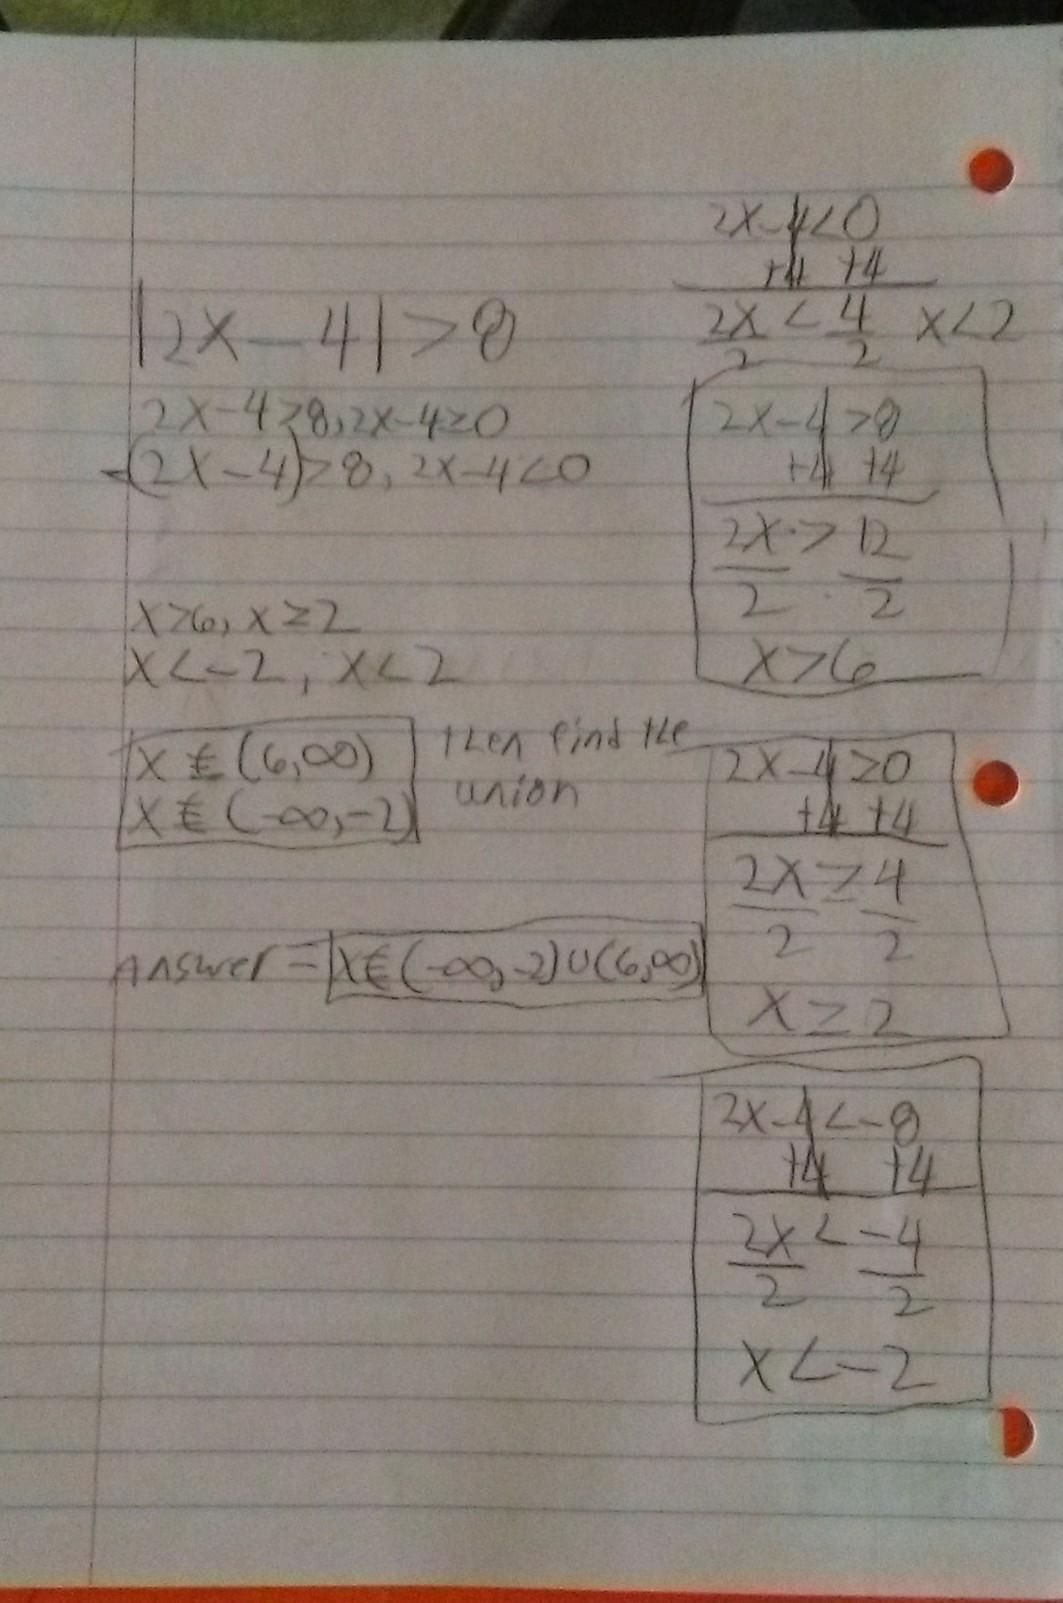 |2x-4|>8
2x-4>8, 2x-4≥0
-(2x-4)>8, 2x-4<0
x>6, x≥2
x<-2, x<2
x∈(6,∞)
x∈(-∞,-2)
then find the
union
Answer = x∈(-∞,-2)∪(6,∞)
2x-4<0
+4 +4
2x < 4 x<2
2 2
2x-4>8
+4 +4
2x > 12
2 2
x>6
2x-4≥0
+4 +4
2x ≥ 4
2 2
x≥2
2x-4<-8
+4 +4
2x < -4
2 2
x<-2